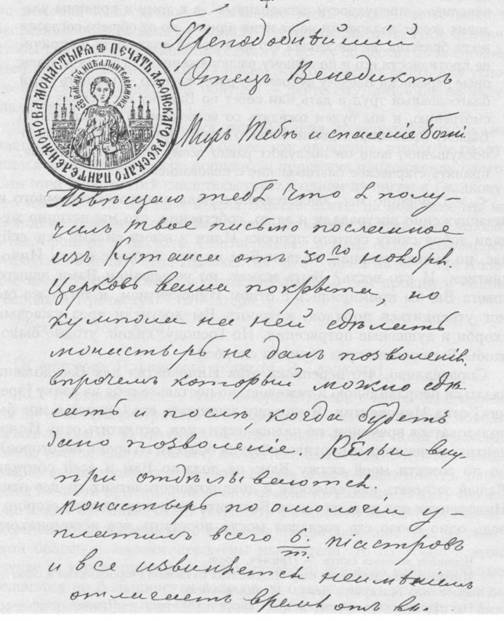 ПЕЧАТЬ АѲОНСКАГО РУССКАГО ПАНТЕЛЕИМОНОВА МОНАСТЫРЯ
Преподобнѣйшій
Отецъ Венедиктъ
Миръ Тебѣ и спасеніе Божій
Извѣщаю тебя что я полу-
чилъ твое письмо посланное
изъ Кутаиса отъ 30го ноября.
Церковь ваша покрыта, но
кумполы на ней сдѣлать
монастырь не далъ позволенія
впрочемъ который можно сдѣ-
лать и послѣ, когда будетъ
дано позволеніе. Кельи вну
три отдѣлываются.
Монастырь по омологіи у-
платилъ всего 6/т. піастровъ
и все извиняется неимѣніемъ
отлагаетъ время отъ